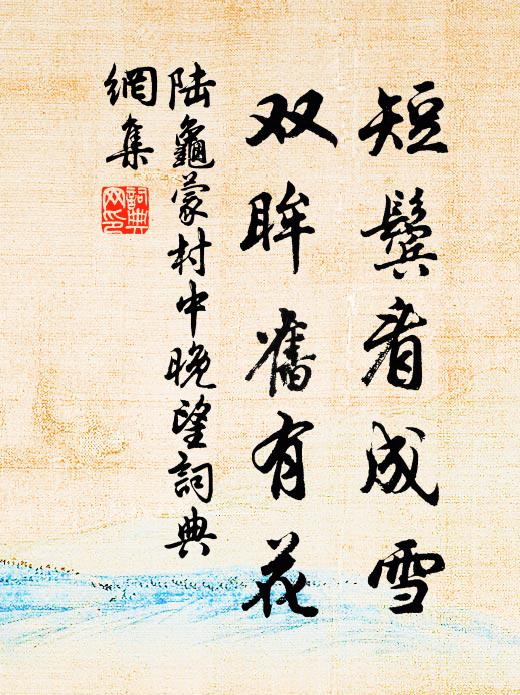 短鬓看成雪
双眸舊有花
陆龜蒙村中晚望詞典
網集
詞典
网印